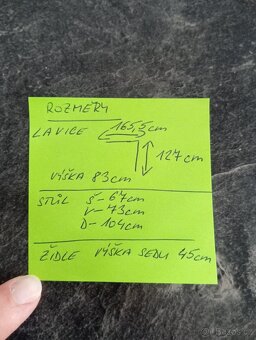 ROZMĚRY
LAVICE 165,5cm
127cm
VÝŠKA 83cm
STŮL Š-67cm
V-73cm
D-104cm
ŽIDLE VÝŠKA SEDU 45cm